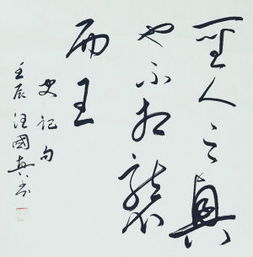 聖人之興
也不相襲
而王
史記句
壬辰汪國真书